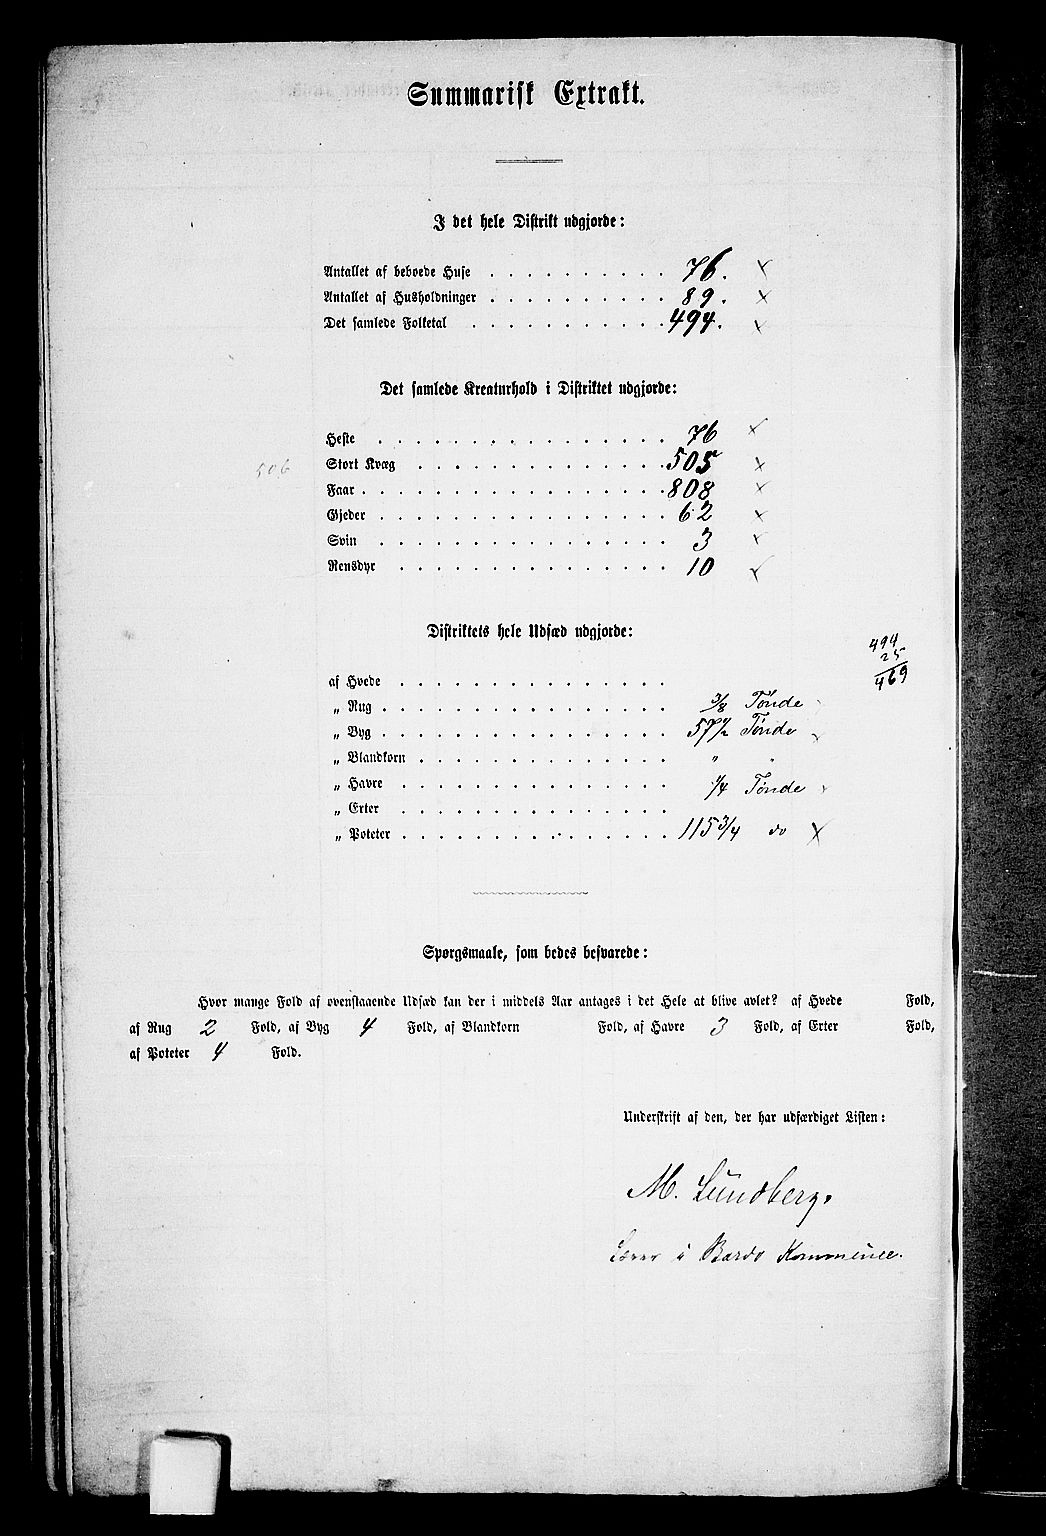 Summarisk Extrakt.
I det hele Distrikt udgjorde:
Antallet af beboede Huse . . . . . . . . . . 76. ×
Antallet af Husholdninger . . . . . . . . . . 89. ×
Det samlede Folketal . . . . . . . . . . . 494. ×
Det samlede Kreaturhold i Distriktet udgjorde:
Heste . . . . . . . . . . . . . . . . 76 ×
506 Stort Kvæg . . . . . . . . . . . . . . 505 ×
Faar . . . . . . . . . . . . . . . . . 808 ×
Gjeder . . . . . . . . . . . . . . . . 62 ×
Svin . . . . . . . . . . . . . . . . 3 ×
Rensdyr . . . . . . . . . . . . . . . 10 ×
Distriktets hele Udsæd udgjorde:
494
25
469
af Hvede . . . . . . . . . . . . . . .
„ Rug . . . . . . . . . . . . . . . . 3/8 Tønde
„ Byg . . . . . . . . . . . . . . . . 57 1/2 Tønde
„ Blandkorn . . . . . . . . . . . . . . " "
„ Havre . . . . . . . . . . . . . . . 1/4 Tønde
„ Erter . . . . . . . . . . . . . . .
„ Poteter . . . . . . . . . . . . . . . 115 3/4 do ×
Spørgsmaale, som bedes besvarede:
Hvor mange Fold af ovenstaaende Udsæd kan der i middels Aar antages i det Hele at blive avlet? af Hvede Fold,
af Rug 2 Fold, af Byg 4 Fold, af Blandkorn Fold, af Havre 3 Fold, af Erter Fold,
af Poteter 4 Fold.
Underskrift af den, der har udfærdiget Listen:
M. Lundberg.
Lærer i Bardo Kommune.